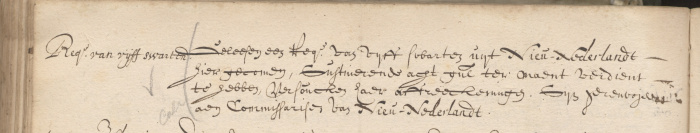 Reqe. van vijff swarten Gelesen een Reqe. van vijff swarten uijt Nieu-Nederlandt
hier gecomen, Sustinerende acht gul. ter maent verdient
te hebben, versoucken haer affreeckeningh. Sijn gerenvoijeert
aen Commissarisen van Nieu-Nederlandt.